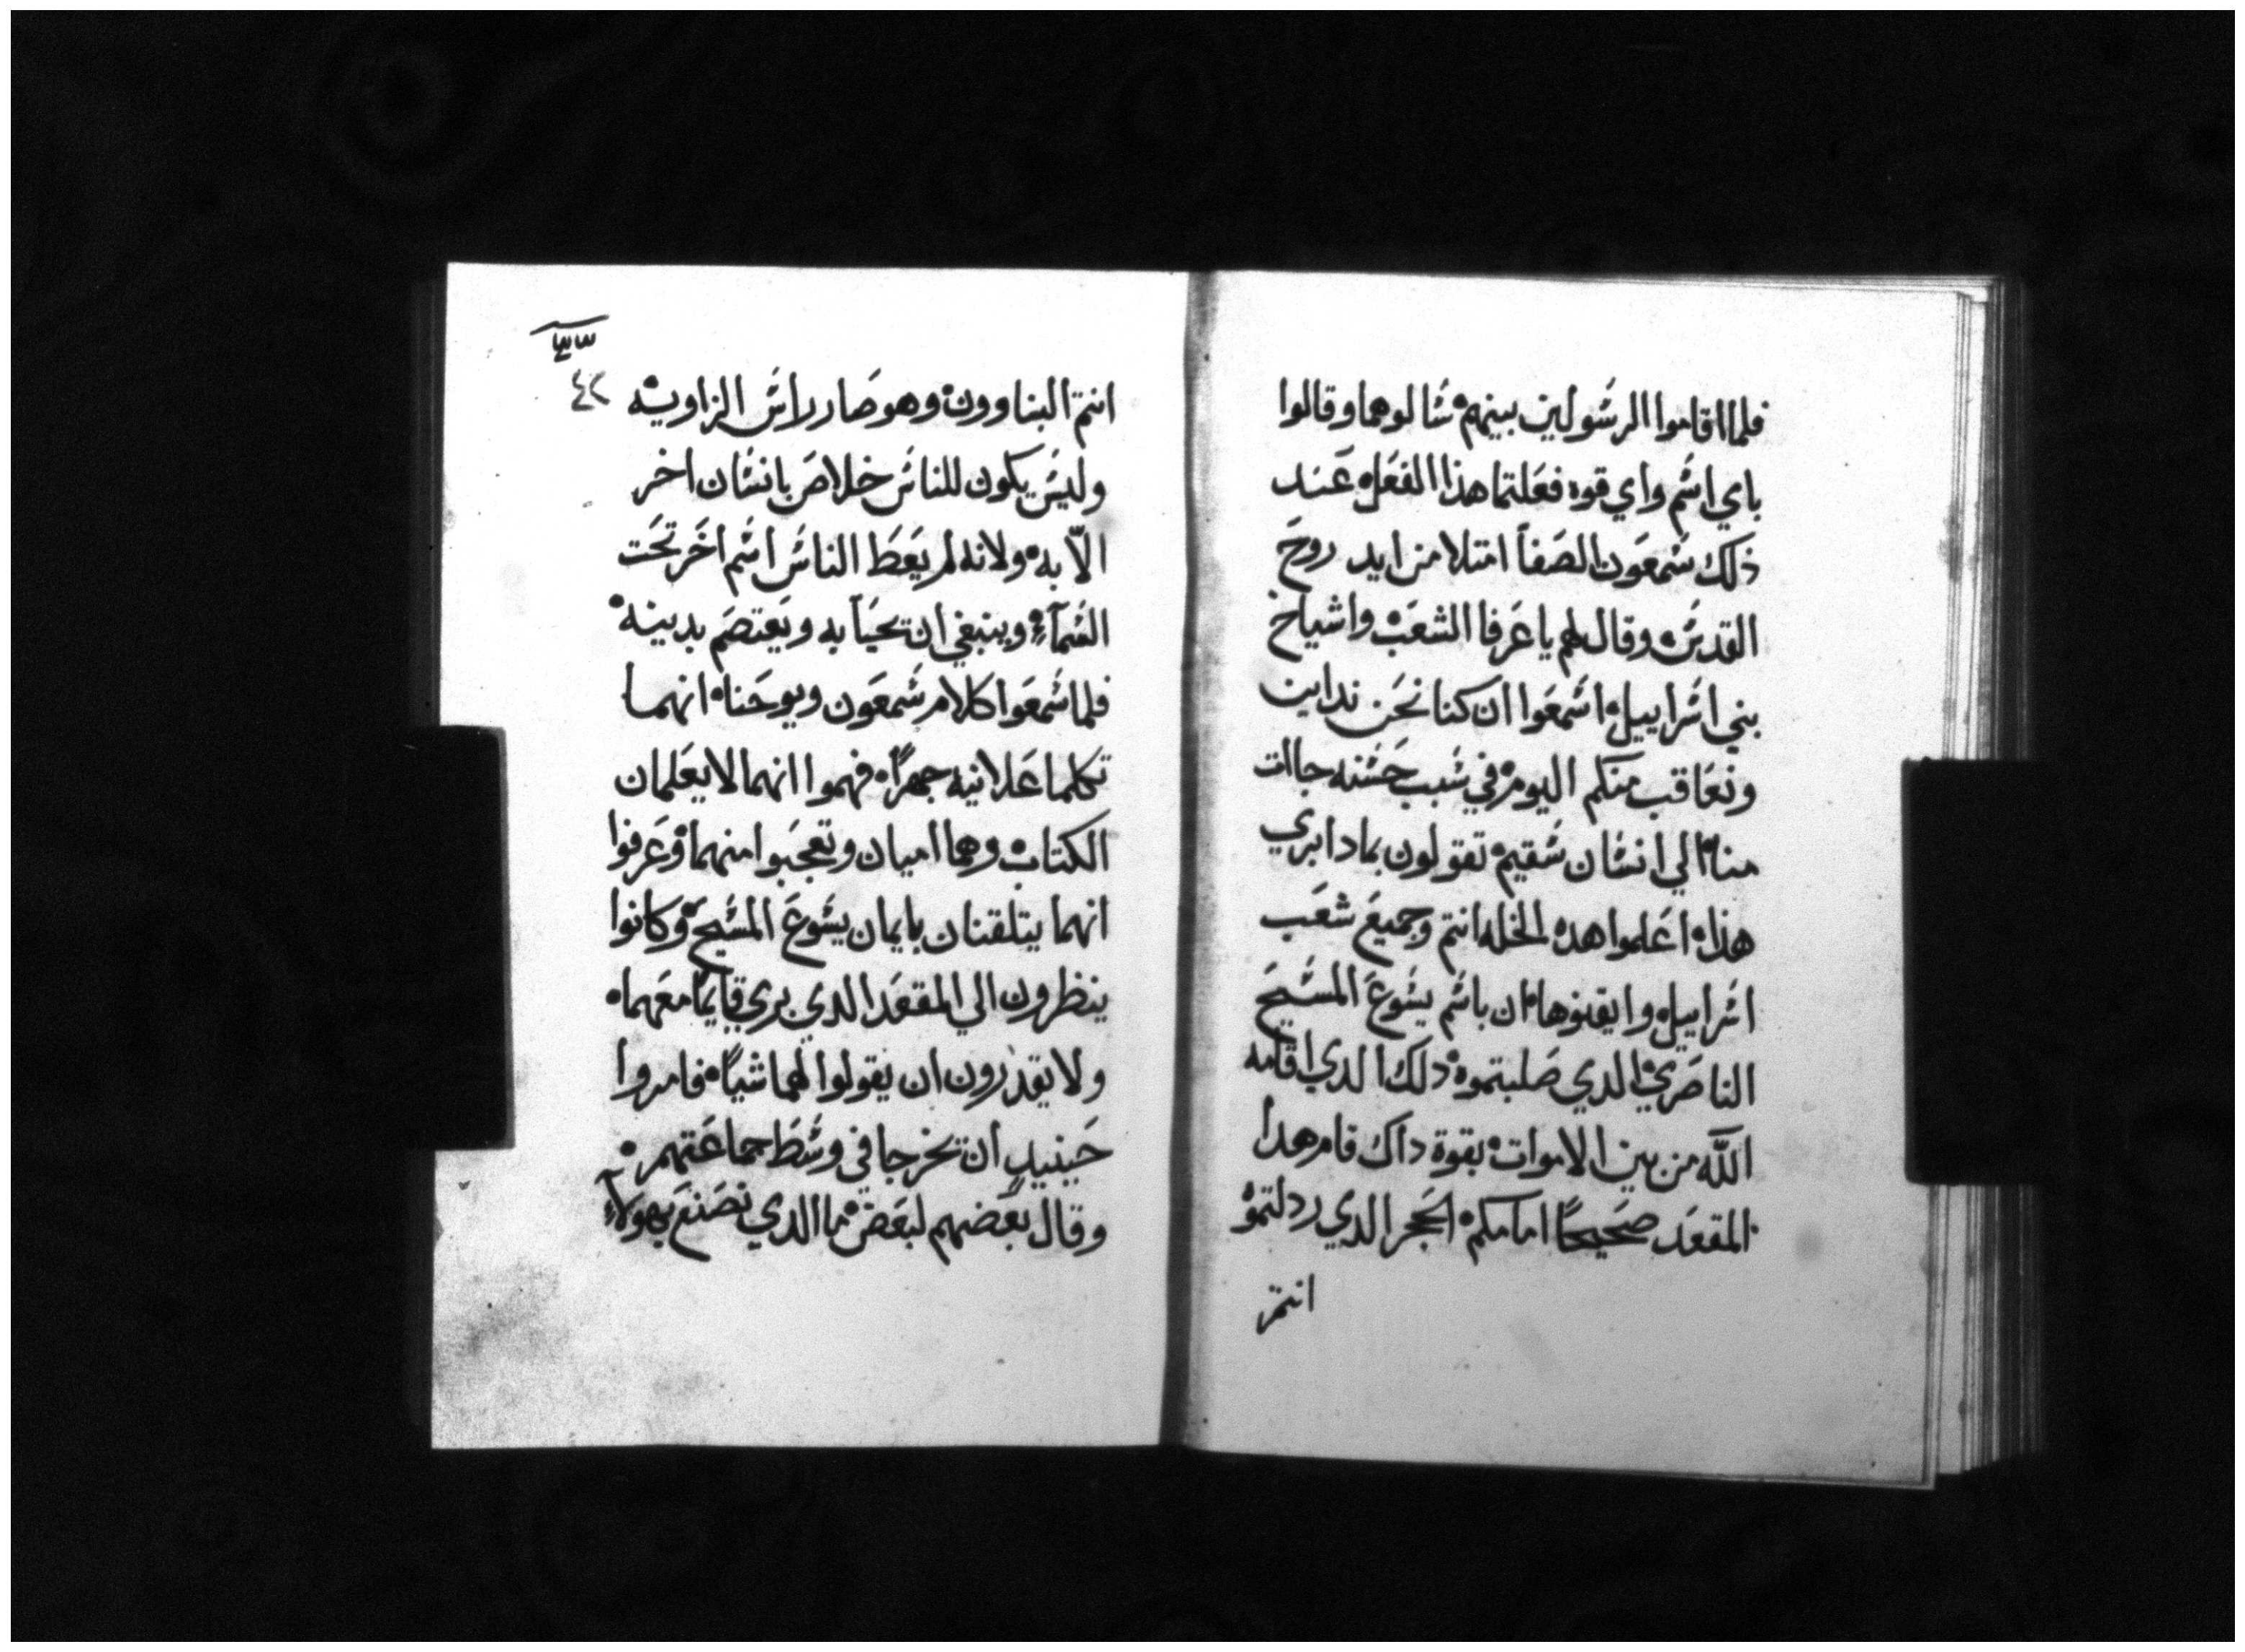 فلما اقاموا الرسولين بينهم سالوهما وقالوا
باي اسم واي قوه فعلتما هذا الفعل عند
ذلك شمعون الصفا امتلا من ايد روح
القدس وقال لهم يا عرفا الشعب واشياخ
بني اسراييل اسمعوا ان كنا نحن نداين
ونعاقب منكم اليوم في سبب حسنه جاات
منا الي انسان سقيم تقولون بمادا ابري
هذا اعلموا هده الخله انتم وجميع شعب
اسراييل وايقنوها ان باسم يسوع المسيح
الناصري الدي صلبتموه دلك الدي اقامه
اللّه من بين الاموات بقوة داك قام هدا
المقعد صحيحًا امامكم الحجر الدي ردلتموه
انتم
٤٢
انتم البناوون وهو صار راس الزاويه
وليس يكون للناس خلاص بانسان اخر
الّا به ولانه لم يعط الناس اسم اخر تحت
السمآءِ وينبغي ان تحيا به ويعتصم بدينه
فلما سمعوا كلام شمعون ويوحنا انهما
تكلما علانيه جهرًا فهموا انهما لا يعلمان
الكتاب وهما اميان وتعجبوا منهما وعرفوا
انهما يتلقنان بايمان يسوع المسيح وكانوا
ينظرون الي المقعد الدي بري قايمًا معهما
ولا يقدرون ان يقولوا لهما شياً فامروا
حينيدٍ ان تخرجا في وسط جماعتهم
وقال بعضهم لبعض ما الدي نصنع بهولآءِ